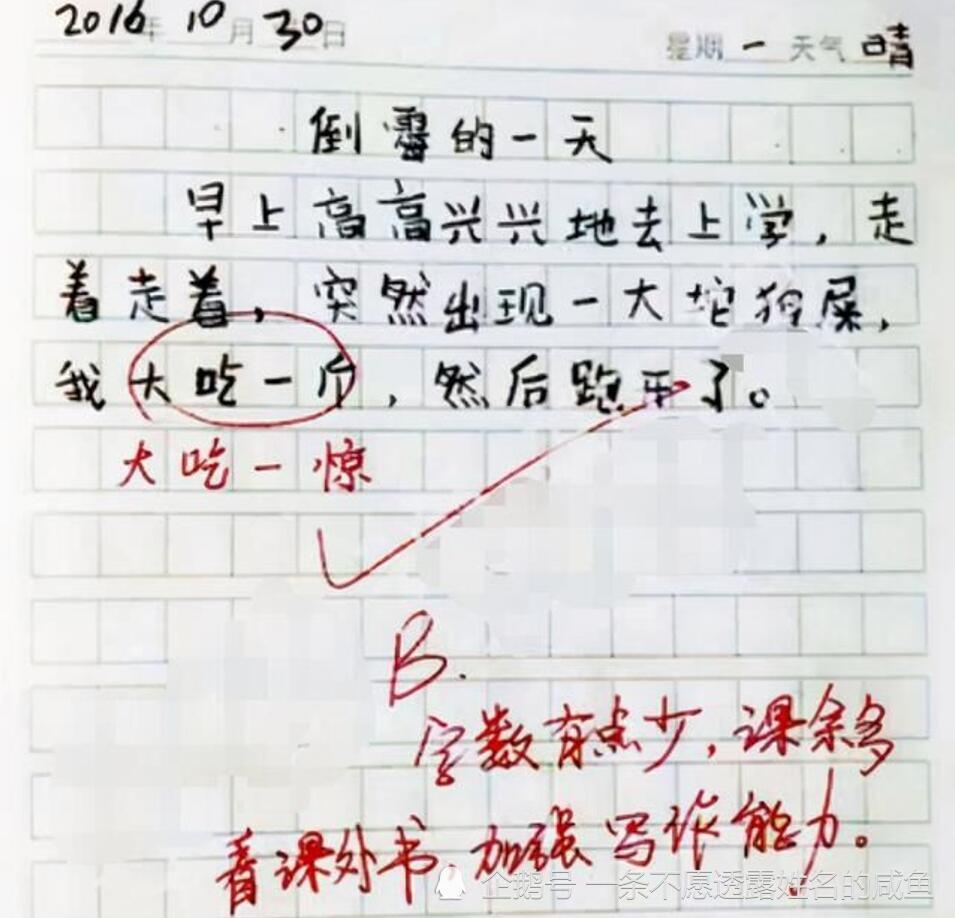 2016年 10月 30日 星期 一 天气 晴
倒霉的一天
早上高高兴兴地去上学,走
着走着,突然出现一大坨狗屎,
我大吃一斤,然后跑开了。
大吃一惊
B.
字数有点少,课余多
看课外书、加强写作能力。
企鹅号 一条不愿透露姓名的咸鱼